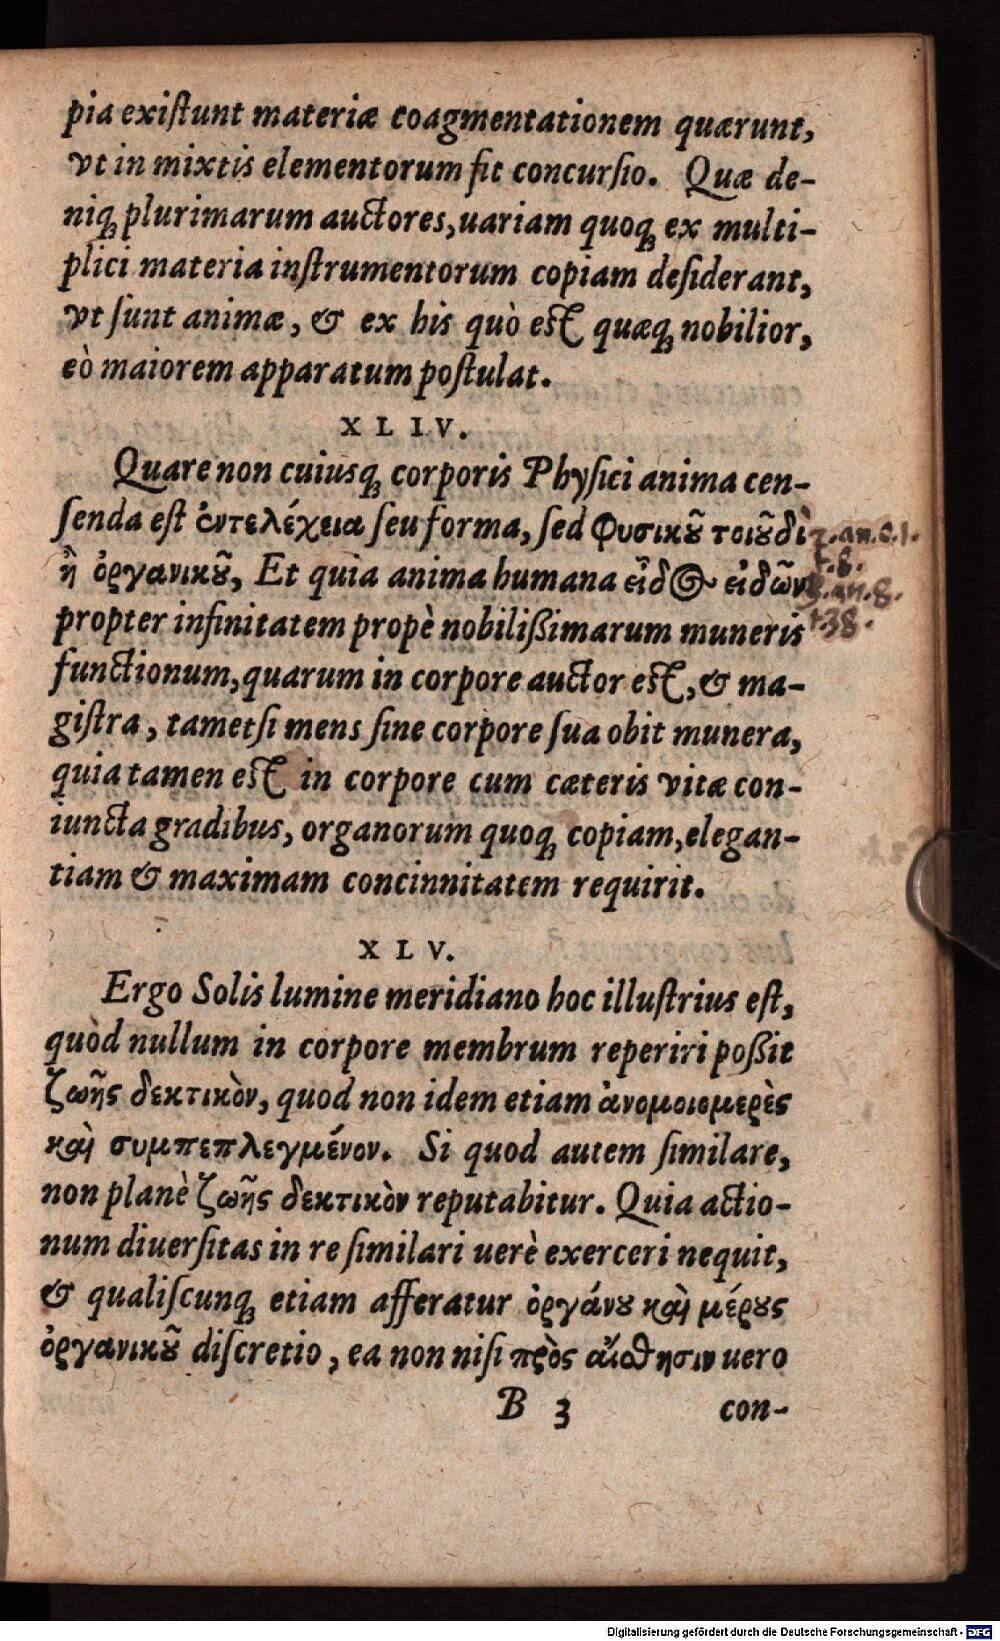 pia exiſtunt materiæ coagmentationem quærunt,
vt in mixtis elementorum fit concurſio. Quæ de-
niqꝫ plurimarum auctores, uariam quoqꝫ ex multi-
plici materia inſtrumentorum copiam deſiderant,
vt ſunt animæ, & ex his quò eſt quæqꝫ nobilior,
eò maiorem apparatum poſtulat.
XLIV.
Quare non cuiusqꝫ corporis Phyſici anima cen-
ſenda eſt ἐντελέχεια ſeu forma, ſed φυσικοῦ τοιοῦδὶ
ἢ ὀργανικοῦ, Et quia anima humana εἶδος εἰδῶν
propter infinitatem propè nobilißimarum muneris
functionum, quarum in corpore auctor eſt, & ma-
giſtra, tametſi mens ſine corpore ſua obit munera,
quia tamen eſt in corpore cum cæteris vitæ con-
iuncta gradibus, organorum quoqꝫ copiam, elegan-
tiam & maximam concinnitatem requirit.
.an.c.1.
t.8.
3.an.8.
t.38.
XLV.
Ergo Solis lumine meridiano hoc illuſtrius eſt,
quòd nullum in corpore membrum reperiri poßit
ζωῆς δεκτικὸν, quod non idem etiam ἀνομοιομερὲς
καὶ συμπεπλεγμένον. Si quod autem ſimilare,
non planè ζωῆς δεκτικὸν reputabitur. Quia actio-
num diuerſitas in re ſimilari uerè exerceri nequit,
& qualiſcunqꝫ etiam afferatur ὀργάνου καὶ μέρους
ὀργανικοῦ diſcretio, ea non niſi πρὸς αἴσθησιν uero
B 3 con-
Digitalisierung gefördert durch die Deutsche Forschungsgemeinschaft - DFG